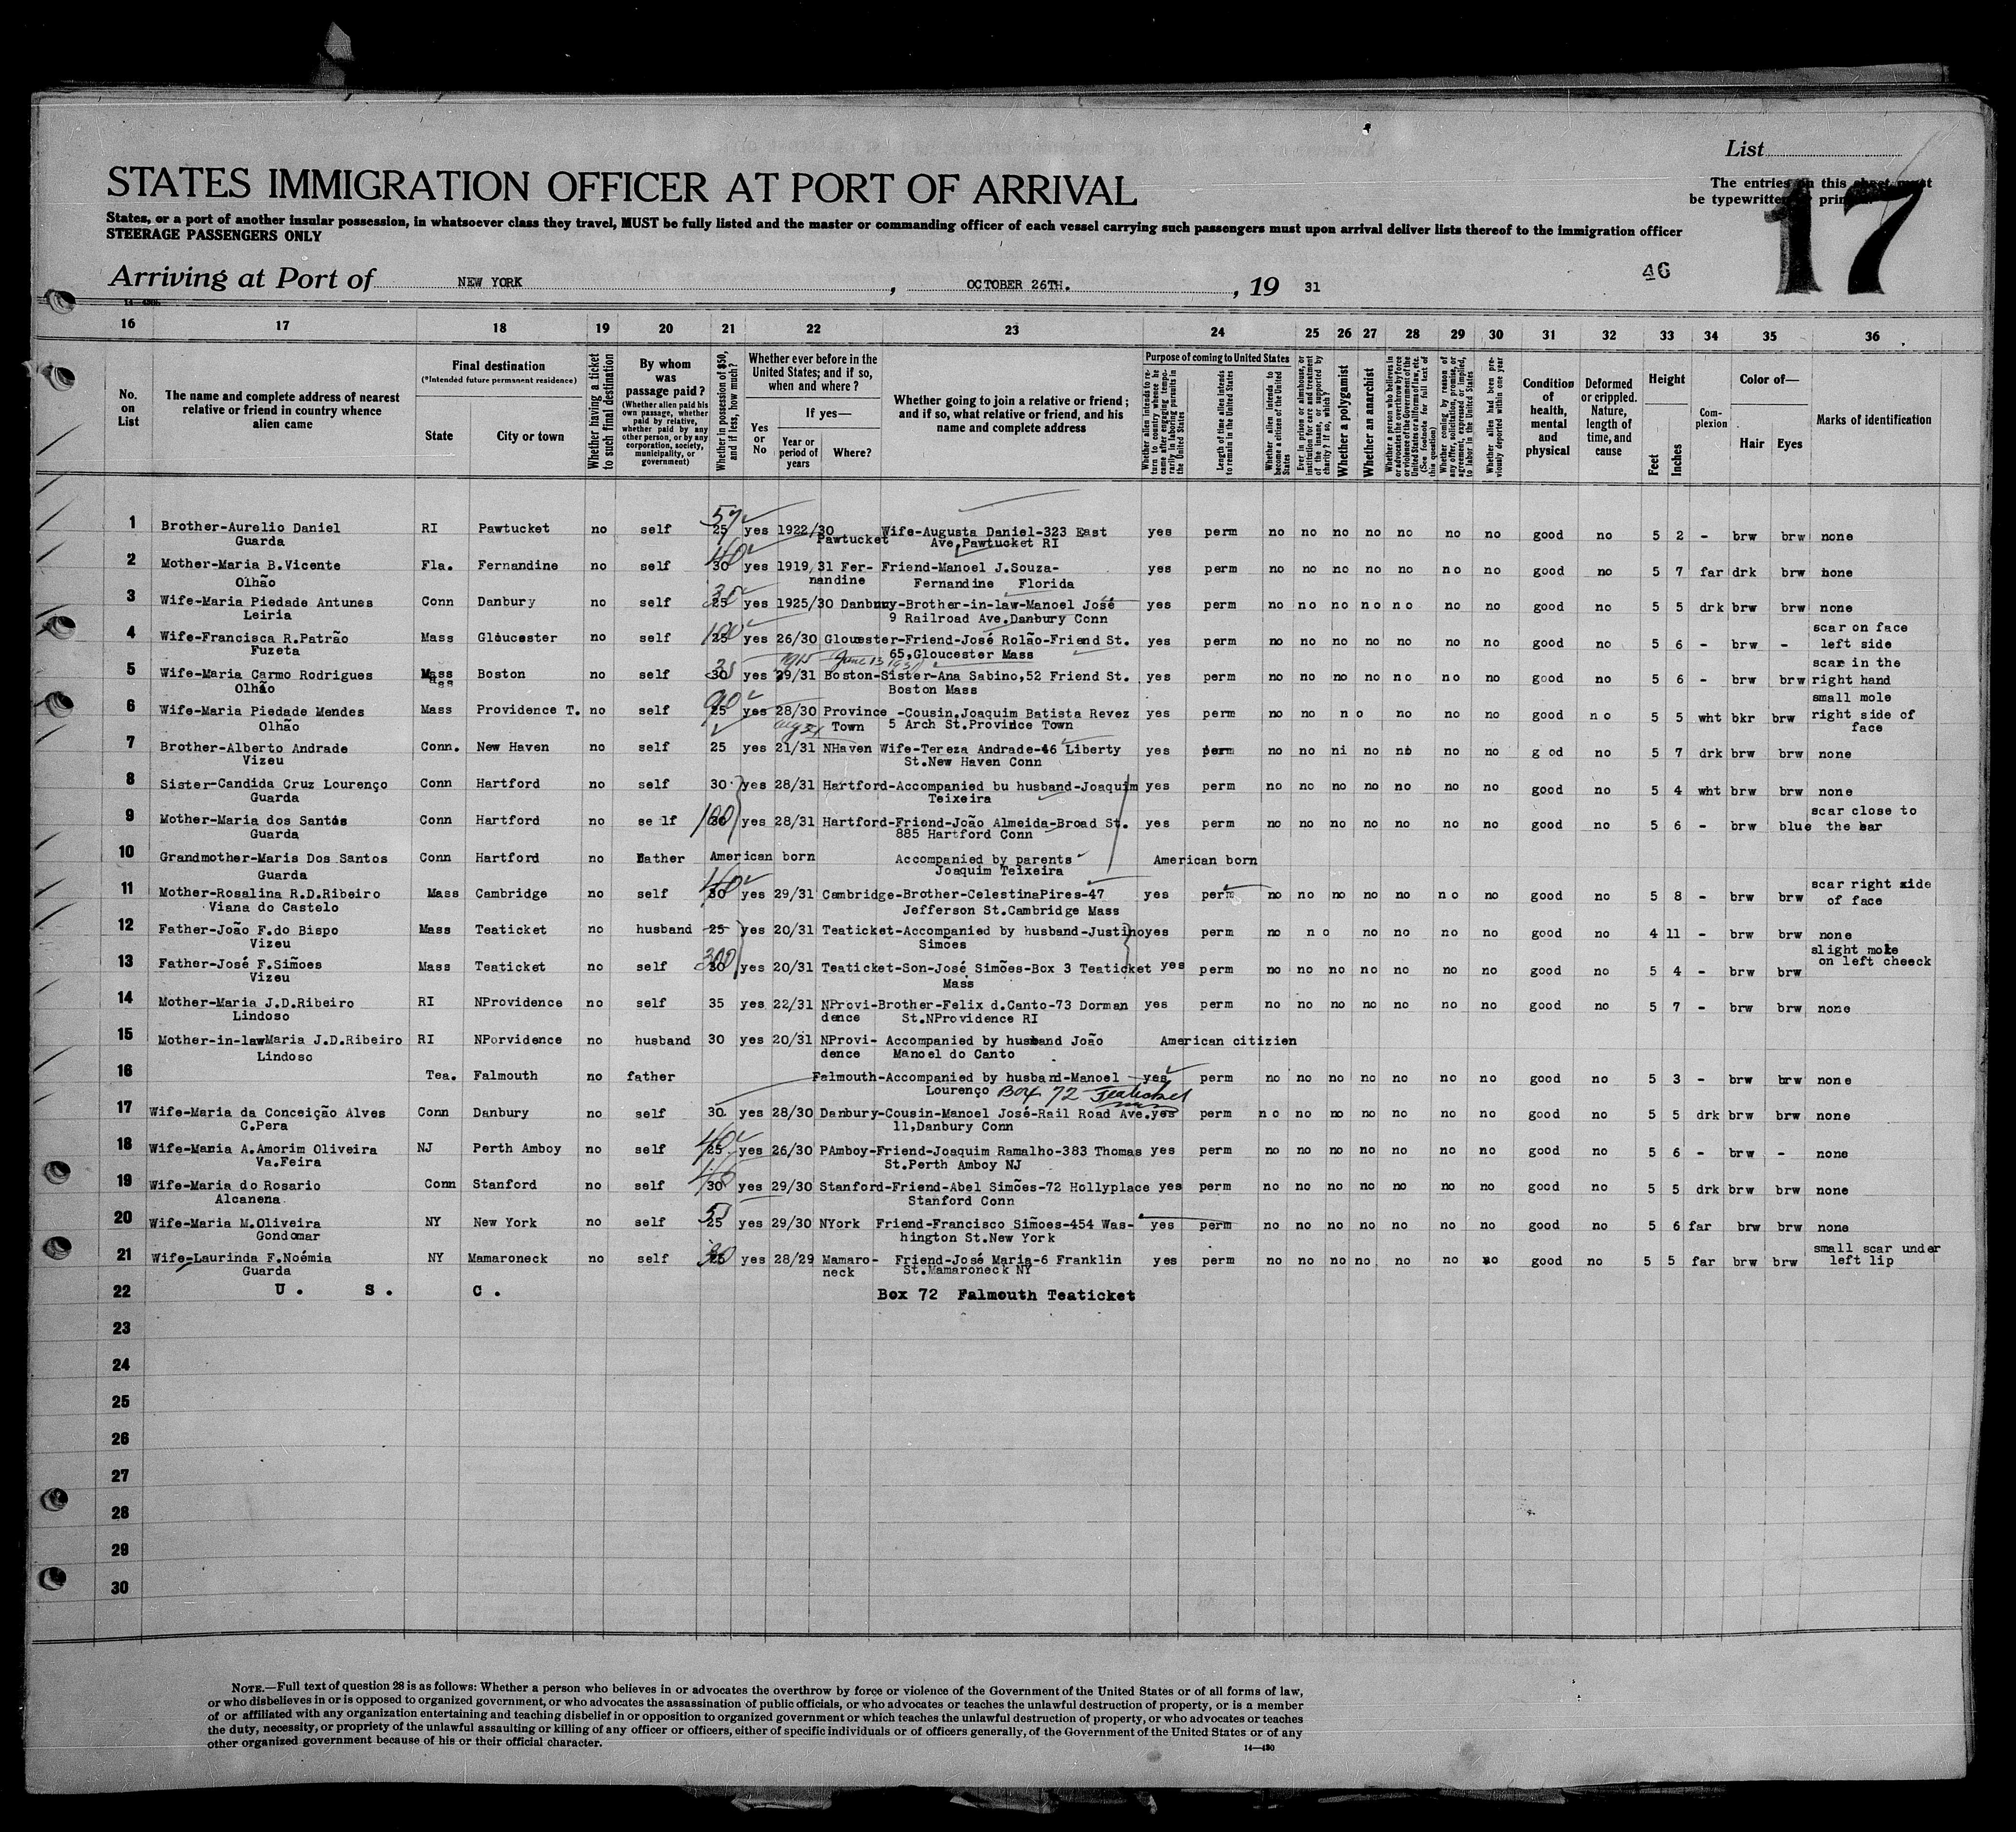 List
17
STATES IMMIGRATION OFFICER AT PORT OF ARRIVAL
The entries on this sheet must
be typewritten or printed.
States, or a port of another insular possession, in whatsoever class they travel, MUST be fully listed and the master or commanding officer of each vessel carrying such passengers must upon arrival deliver lists thereof to the immigration officer
STEERAGE PASSENGERS ONLY
46
Arriving at Port of NEW YORK, OCTOBER 26TH., 19 31
16 17 18 19 20 21 22 23 24 25 26 27 28 29 30 31 32 33 34 35 36
No. on List
The name and complete address of nearest relative or friend in country whence alien came
Final destination
(*Intended future permanent residence)
State
City or town
Whether having a ticket to such final destination
By whom was passage paid?
(Whether alien paid his own passage, whether paid by relative, whether paid by any other person, or by any corporation, society, municipality, or government)
Whether in possession of $50, and if less, how much?
Whether ever before in the United States; and if so, when and where?
Yes or No
If yes—
Year or period of years
Where?
Whether going to join a relative or friend; and if so, what relative or friend, and his name and complete address
Purpose of coming to United States
Whether alien intends to return to country whence he came after engaging temporarily in laboring pursuits in the United States
Length of time alien intends to remain in the United States
Whether alien intends to become a citizen of the United States
Ever in prison or almshouse, or institution for care and treatment of the insane, or supported by charity? If so, which?
Whether a polygamist
Whether an anarchist
Whether a person who believes in or advocates the overthrow by force or violence of the Government of the United States or all forms of law, etc. (See footnote for full text of this question)
Whether coming by reason of any offer, solicitation, promise, or agreement, expressed or implied, to labor in the United States
Whether alien had been previously deported within one year
Condition of health, mental and physical
Deformed or crippled. Nature, length of time, and cause
Height
Feet
Inches
Complexion
Color of—
Hair
Eyes
Marks of identification
1 Brother-Aurelio Daniel RI Pawtucket no self 25 yes 1922/30 Wife-Augusta Daniel-323 East yes perm no no no no no no no good no 5 2 - brw brw none
Guarda Pawtucket Ave.Pawtucket RI
2 Mother-Maria B.Vicente Fla. Fernandine no self 40 30 yes 1919/31 Fer- Friend-Manoel J.Souza- yes perm no no no no no no no good no 5 7 far drk brw none
Olhão nandine Fernandine Florida
3 Wife-Maria Piedade Antunes Conn Danbury no self 25 yes 1925/30 Danbury-Brother-in-law-Manoel José yes perm no no no no no no no good no 5 5 drk brw brw none
Leiria 9 Railroad Ave.Danbury Conn
4 Wife-Francisca R.Patrão Mass Gloucester no self 100 25 yes 26/30 Gloucester-Friend-José Rolão-Friend St. yes perm no no no no no no no good no 5 6 - brw - scar on face
Fuzeta 65,Gloucester Mass left side
5 Wife-Maria Carmo Rodrigues Mass Boston no self 30 yes 29/31 Boston-Sister-Ana Sabino,52 Friend St. yes perm no no no no no no no good no 5 6 - brw brw scar in the
Olhão Boston Mass right hand
6 Wife-Maria Piedade Mendes Mass Providence T. no self 90 25 yes 28/30 Province -Cousin.Joaquim Batista Revez yes perm no no no no no no good no 5 5 wht bkr brw small mole
Olhão Town 5 Arch St.Province Town right side of
face
7 Brother-Alberto Andrade Conn. New Haven no self 25 yes 21/31 NHaven Wife-Tereza Andrade-46 Liberty yes perm no no ni no no no no g od no 5 7 drk brw brw none
Vizeu St.New Haven Conn
8 Sister-Candida Cruz Lourenço Conn Hartford no self 30 yes 28/31 Hartford-Accompanied bu husband-Joaquim yes perm no no no no no no no good no 5 4 wht brw brw none
Guarda Teixeira
9 Mother-Maria dos Santos Conn Hartford no se lf 100 30 yes 28/31 Hartford-Friend-João Almeida-Broad St. yes perm no no no no no no no good no 5 6 - brw blue scar close to
Guarda 885 Hartford Conn the ear
10 Grandmother-Maris Dos Santos Conn Hartford no Father American born Accompanied by parents American born
Guarda Joaquim Teixeira
11 Mother-Rosalina R.D.Ribeiro Mass Cambridge no self 40 30 yes 29/31 Cambridge-Brother-CelestinaPires-47 yes perm no no no no no no no good no 5 8 - brw brw scar right side
Viana do Castelo Jefferson St.Cambridge Mass of face
12 Father-João F.do Bispo Mass Teaticket no husband 25 yes 20/31 Teaticket-Accompanied by husband-Justino yes perm no no no no no no good no 4 11 - brw brw none
Vizeu Simões
13 Father-José F.Simões Mass Teaticket no self 300 30 yes 20/31 Teaticket-Son-José Simões-Box 3 Teaticket yes perm no no no no no no no good no 5 4 - brw brw slight mole
Vizeu Mass on left cheeck
14 Mother-Maria J.D.Ribeiro RI NProvidence no self 35 yes 22/31 NProvi-Brother-Felix d.Canto-73 Dorman yes perm no no no no no no no good no 5 7 - brw brw none
Lindoso dence St.NProvidence RI
15 Mother-in-lawMaria J.D.Ribeiro RI NPorvidence no husband 30 yes 20/31 NProvi- Accompanied by husband João American citizien
Lindoso dence Manoel do Canto
16 Tea. Falmouth no father Falmouth-Accompanied by husband-Manoel yes perm no no no no no no no good no 5 3 - brw brw none
Lourenço Box 72 Teaticket
17 Wife-Maria da Conceição Alves Conn Danbury no self 30 yes 28/30 Danbury-Cousin-Manoel José-Rail Road Ave.yes perm no no no no no no no good no 5 5 drk brw brw none
C.Pera 11,Danbury Conn
18 Wife-Maria A.Amorim Oliveira NJ Perth Amboy no self 40 25 yes 26/30 PAmboy-Friend-Joaquim Ramalho-383 Thomas yes perm no no no no no no no good no 5 6 - brw - none
Va.Feira St.Perth Amboy NJ
19 Wife-Maria do Rosario Conn Stanford no self 30 yes 29/30 Stanford-Friend-Abel Simões-72 Hollyplace yes perm no no no no no no no good no 5 5 drk brw brw none
Alcanena Stanford Conn
20 Wife-Maria M.Oliveira NY New York no self 25 yes 29/30 NYork Friend-Francisco Simoes-454 Was- yes perm no no no no no no no good no 5 6 far brw brw none
Gondomar hington St.New York
21 Wife-Laurinda F.Noémia NY Mamaroneck no self yes 28/29 Mamaro- Friend-José Maria-6 Franklin yes perm no no no no no no no good no 5 5 far brw brw small scar under
Guarda neck St.Mamaroneck NY left lip
22 U. S. C. Box 72 Falmouth Teaticket
23
24
25
26
27
28
29
30
NOTE.—Full text of question 28 is as follows: Whether a person who believes in or advocates the overthrow by force or violence of the Government of the United States or of all forms of law,
or who disbelieves in or is opposed to organized government, or who advocates the assassination of public officials, or who advocates or teaches the unlawful destruction of property, or is a member
of or affiliated with any organization entertaining and teaching disbelief in or opposition to organized government or which teaches the unlawful destruction of property, or who advocates or teaches
the duty, necessity, or propriety of the unlawful assaulting or killing of any officer or officers, either of specific individuals or of officers generally, of the Government of the United States or of any
other organized government because of his or their official character.
14—430